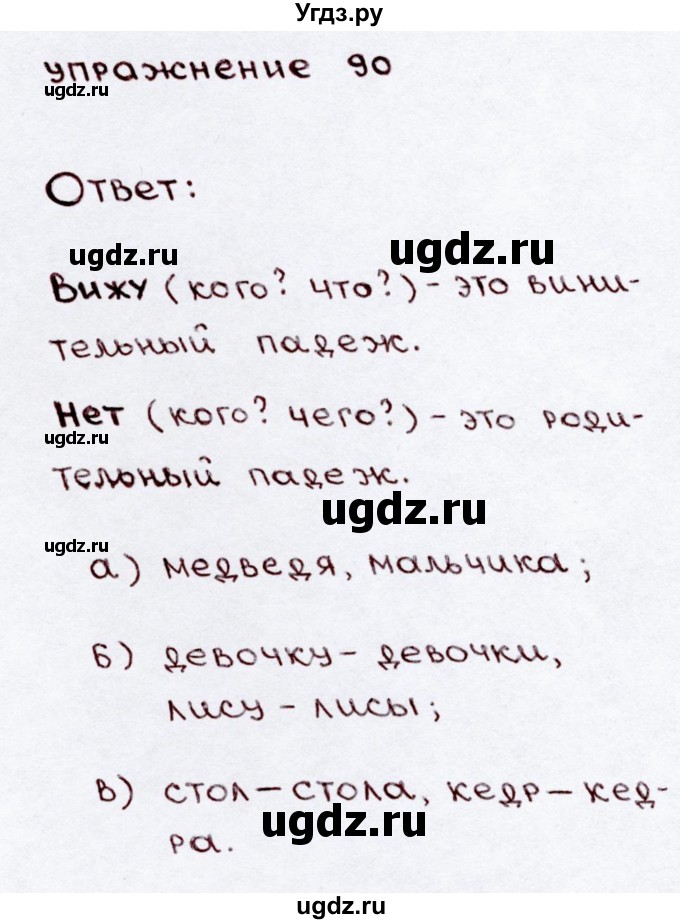 Угдз.ру
упражнение 90
ugdz.ru
Ответ:
ugdz.ru ugdz.ru
Вижу (кого? что?) - это вини-
тельный падеж.
Нет (кого? чего?) - это роди-
ugdz.ru
тельный падеж.
ugdz.ru
ugdz.ru
а) медведя, мальчика;
б) девочку - девочки,
лису - лисы;
в) стол - стола, кедр - кед-
ugdz.ru
ра.
ugdz.ru